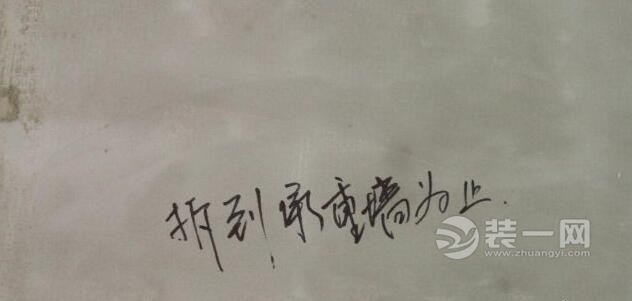 拆到承重墙为止.
装一网
www.zhuangyi.com